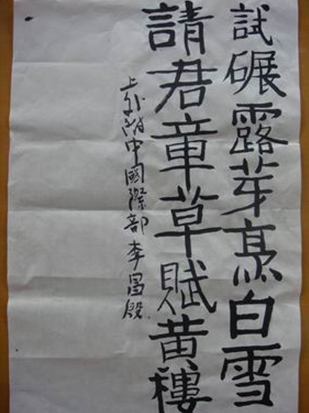 試碾露芽烹白雪
請君章草賦黄樓
上外附中國際部李昌殷